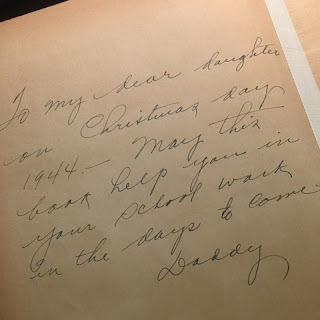 To my dear daughter
on Christmas day
1944 — May this
book help you in
your school work
in the days to come
Daddy